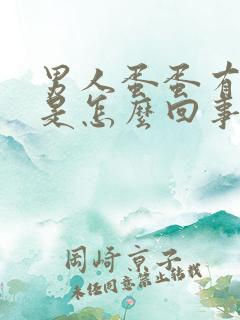 男人蛋蛋有
是怎麼回事
岡崎京子
未经同意禁止转载